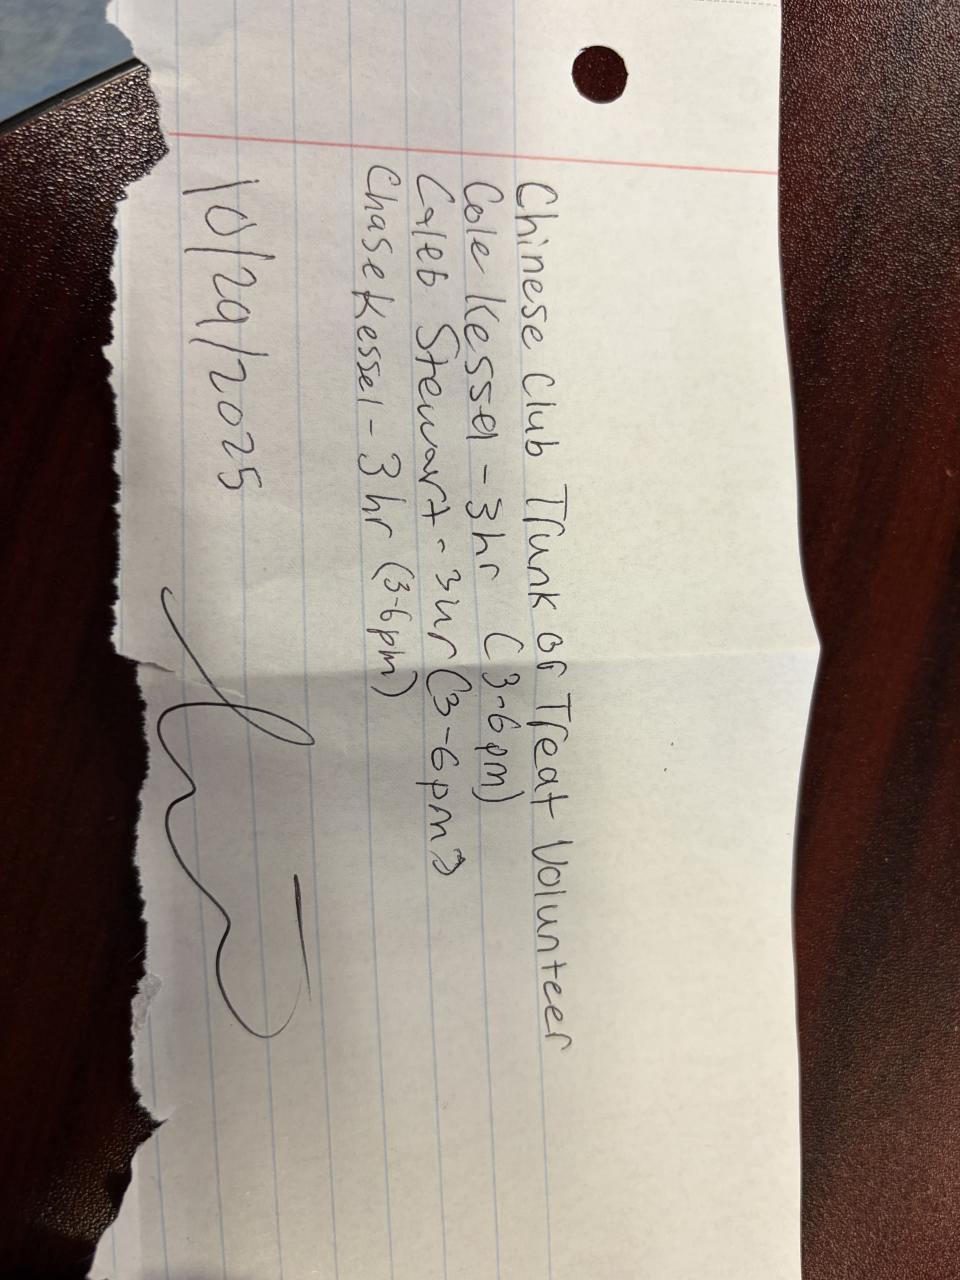 Chinese Club Trunk or Treat Volunteer
Cole Kessel - 3hr (3-6pm)
Caleb Stewart - 3hr (3-6pm)
Chase Kessel - 3 hr (3-6pm)
10/29/2025